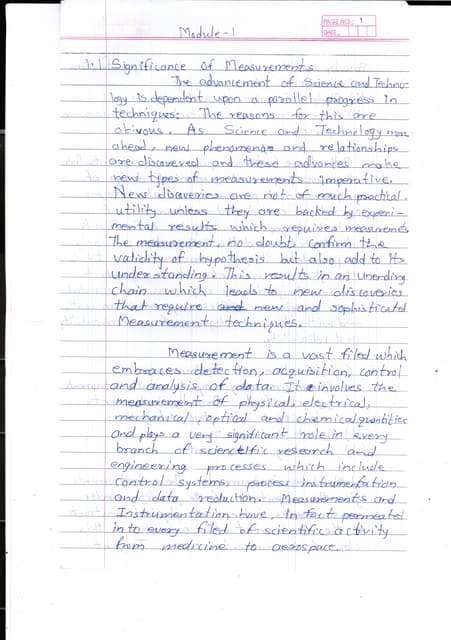 Module-1
PAGE NO.: 1
DATE
1.1 Significance of Measurements
The advancement of Science and Techno-
logy is dependent upon a parallel progress in
techniques: The reasons for this are
obivous. As Science and Technology move
ahead, new phenomena and relationships
are discovered and these advances make
new types of measurements imperative.
New discoveries are not of much practical
utility unless they are backed by experi-
mental results which requires measurements
The measurement, no doubt, confirm the
validity of hypothesis but also add to its
understanding. This results in an unending
chain which leads to new discoveries
that require and new and sophisticated
Measurement techniques.
Measurement is a vast filed which
embraces detection, acquisition, control
and analysis of data. It involves the
measurement of physical, electrical,
mechanical, optical and chemical quantities
and plays a very significant role in every
branch of scientific research and
engineering processes which include
control systems, process instrumentation
and data reduction. Measurements and
Instrumentation have, In fact permeated
in to every filed of scientific activity
from medicine to aerospace.